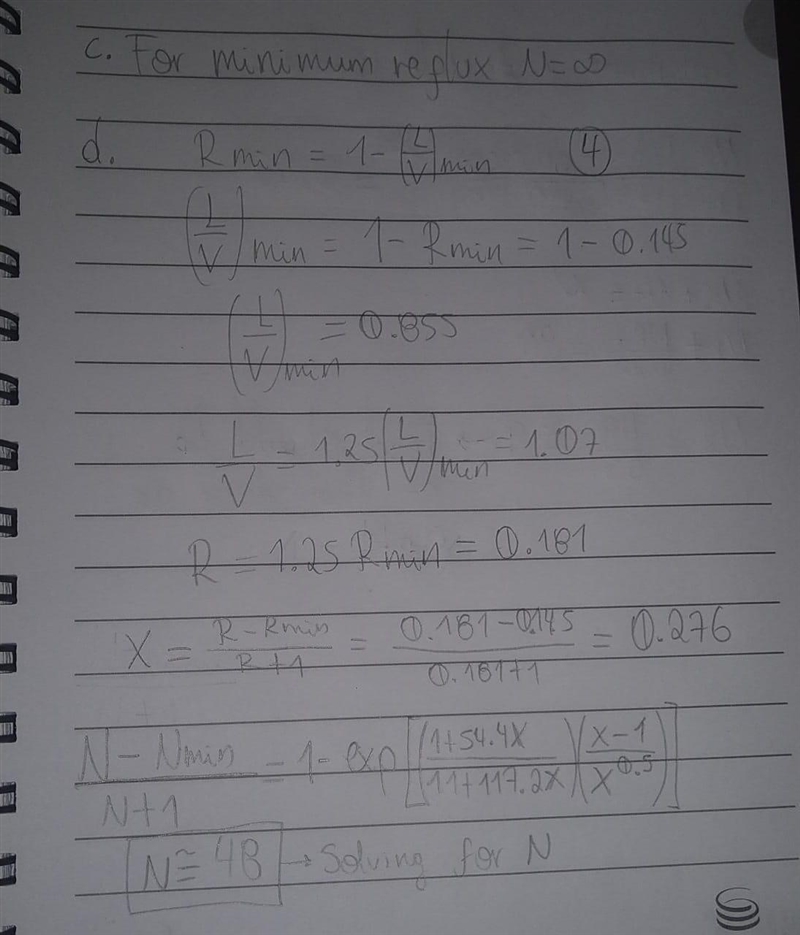 c. For minimum reflux N=∞
d. Rmin = 1 - (L/V)min (4)
(L/V)min = 1 - Rmin = 1 - 0.145
(L/V)min = 0.855
L/V = 1.25 (L/V)min = 1.07
R = 1.25 Rmin = 0.181
X = (R - Rmin)/(R+1) = (0.181 - 0.145)/(0.181+1) = 0.276
(N - Nmin)/(N+1) = 1 - exp[((1+54.4X)/(11+117.2X))((X-1)/X^0.5)]
N ≅ 48 → Solving for N